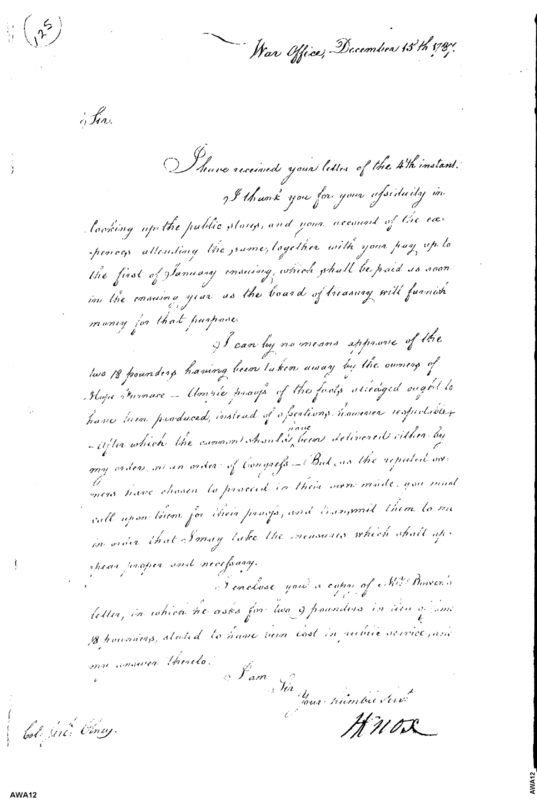 125
War Office, December 15th 1787.
Sir.
I have received your letter of the 4th instant.
I thank you for your assiduity in
looking up the public stores, and your account of the ex-
pences attending the same, together with your pay, up to
the first of January ensuing, which shall be paid as soon
in the ensuing year as the board of treasury will furnish
money for that purpose.
I can by no means approve of the
two 18 pounders having been taken away by the owners of
Hope Furnace — Ample proofs of the facts alledged ought to
have been produced, instead of assertions however respectible,
— After which the cannon should have been delivered either by
my order, or an order of Congress — But, as the reputed ow-
ners have chosen to proceed in their own mode, you must
call upon them for their proofs, and transmit them to me
in order that I may take the measures which shall ap-
pear proper and necessary.
I enclose you a copy of Mr. Bowen's
letter, in which he asks for two 9 pounders in lieu of
18 pounders, stated to have been lost in public service, and
my answer thereto.
I am
Sir
Your humble Servt
HKnox
Col. Jere. Olney.
AWA12
AWA12